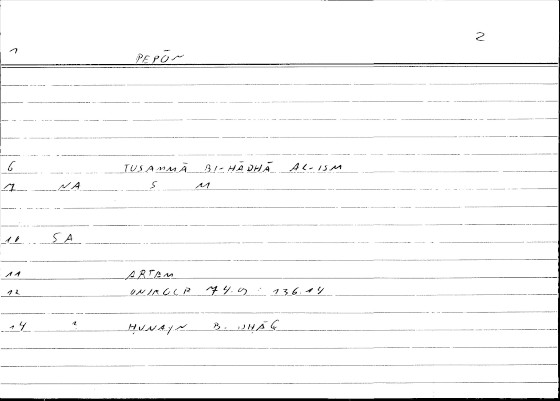 2
1 PEPŌN
6 TUSAMMĀ BI-HĀDHĀ AL-ISM
7 NA S M
10 SA
11 ARTEM
12 ONIROCR 74.5 : 136.14
14 2 ḤUNAYN B. ISḤĀG